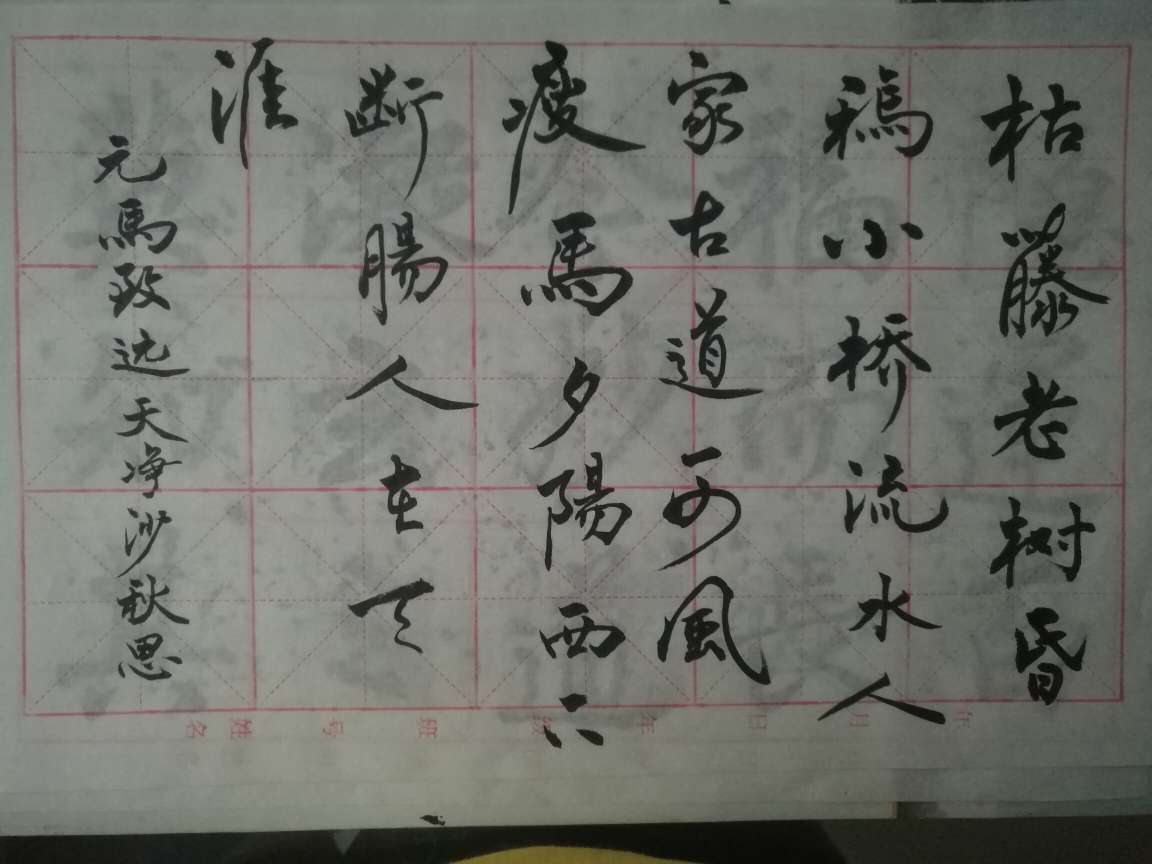 枯藤老树昏
鴉小桥流水人
家古道西風
瘦馬夕陽西下
断腸人在天
涯
元馬致远 天净沙秋思
年 月 日 年 级 班 号 姓名